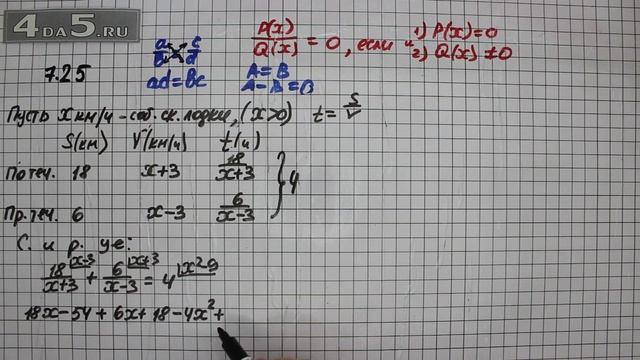 4DA5.RU
a/b = c/d
ad = bc
P(x)/Q(x) = 0, если и 1) P(x)=0
2) Q(x) ≠ 0
A = B
A - B = B
7.25
Пусть x км/ч - соб. ск. лодки, (x>0) t = S/V
S(км) V(км/ч) t(ч)
По теч. 18 x+3 18/(x+3)
Пр. теч. 6 x-3 6/(x-3) } 4
С. и р. ур-е:
18/(x+3) |x-3 + 6/(x-3) |x+3 = 4 |x²-9
18x - 54 + 6x + 18 - 4x² +